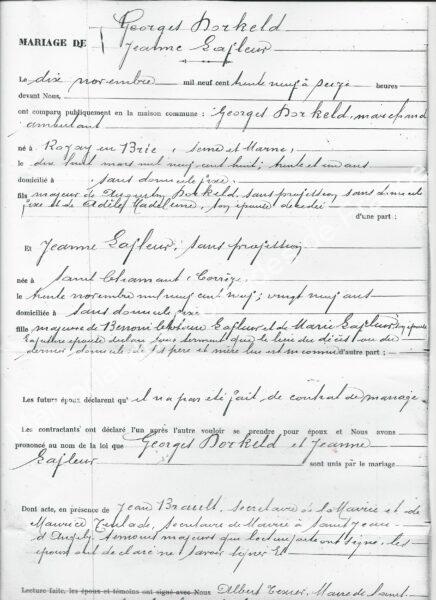 MARIAGE DE { Georges Dorkeld
Jeanne Lafleur
Le dix novembre mil neuf cent trente neuf à seize heures
devant Nous,
ont comparu publiquement en la maison commune : Georges Dorkeld, marchand
ambulant
né à Rozay en Brie, Seine et Marne,
le dix huit mars mil neuf cent huit; trente et un ans
domicilié à sans domicile fixe
fils majeur de Dorkeld, sans profession sans domicile
fixe et de Adèle Madeleine, son épouse décédée
d'une part :
Et Jeanne Lafleur, sans profession
née à Saint Chamant, Corrèze
le trente novembre mil neuf cent neuf; vingt neuf ans
domiciliée à sans domicile fixe
fille majeure de Lafleur et de Marie Lafleur, son épouse
La future épouse déclare sous serment que le lieu du décès ou du
dernier domicile de ses père et mère lui est inconnu d'autre part ;
Les futurs époux déclarent qu' il n'a pas été fait de contrat de mariage
Les contractants ont déclaré l'un après l'autre vouloir se prendre pour époux et Nous avons
prononcé au nom de la loi que Georges Dorkeld et Jeanne
Lafleur sont unis par le mariage
Dont acte, en présence de Jean Brault, secrétaire de la Mairie et de
Maurice secrétaire de Mairie à Saint Jean
d'Angély témoins majeurs qui lecture faite ont signé, les
époux ont déclaré ne savoir signer Et
Lecture faite, les époux et témoins ont signé avec Nous Albert Maire de Saint